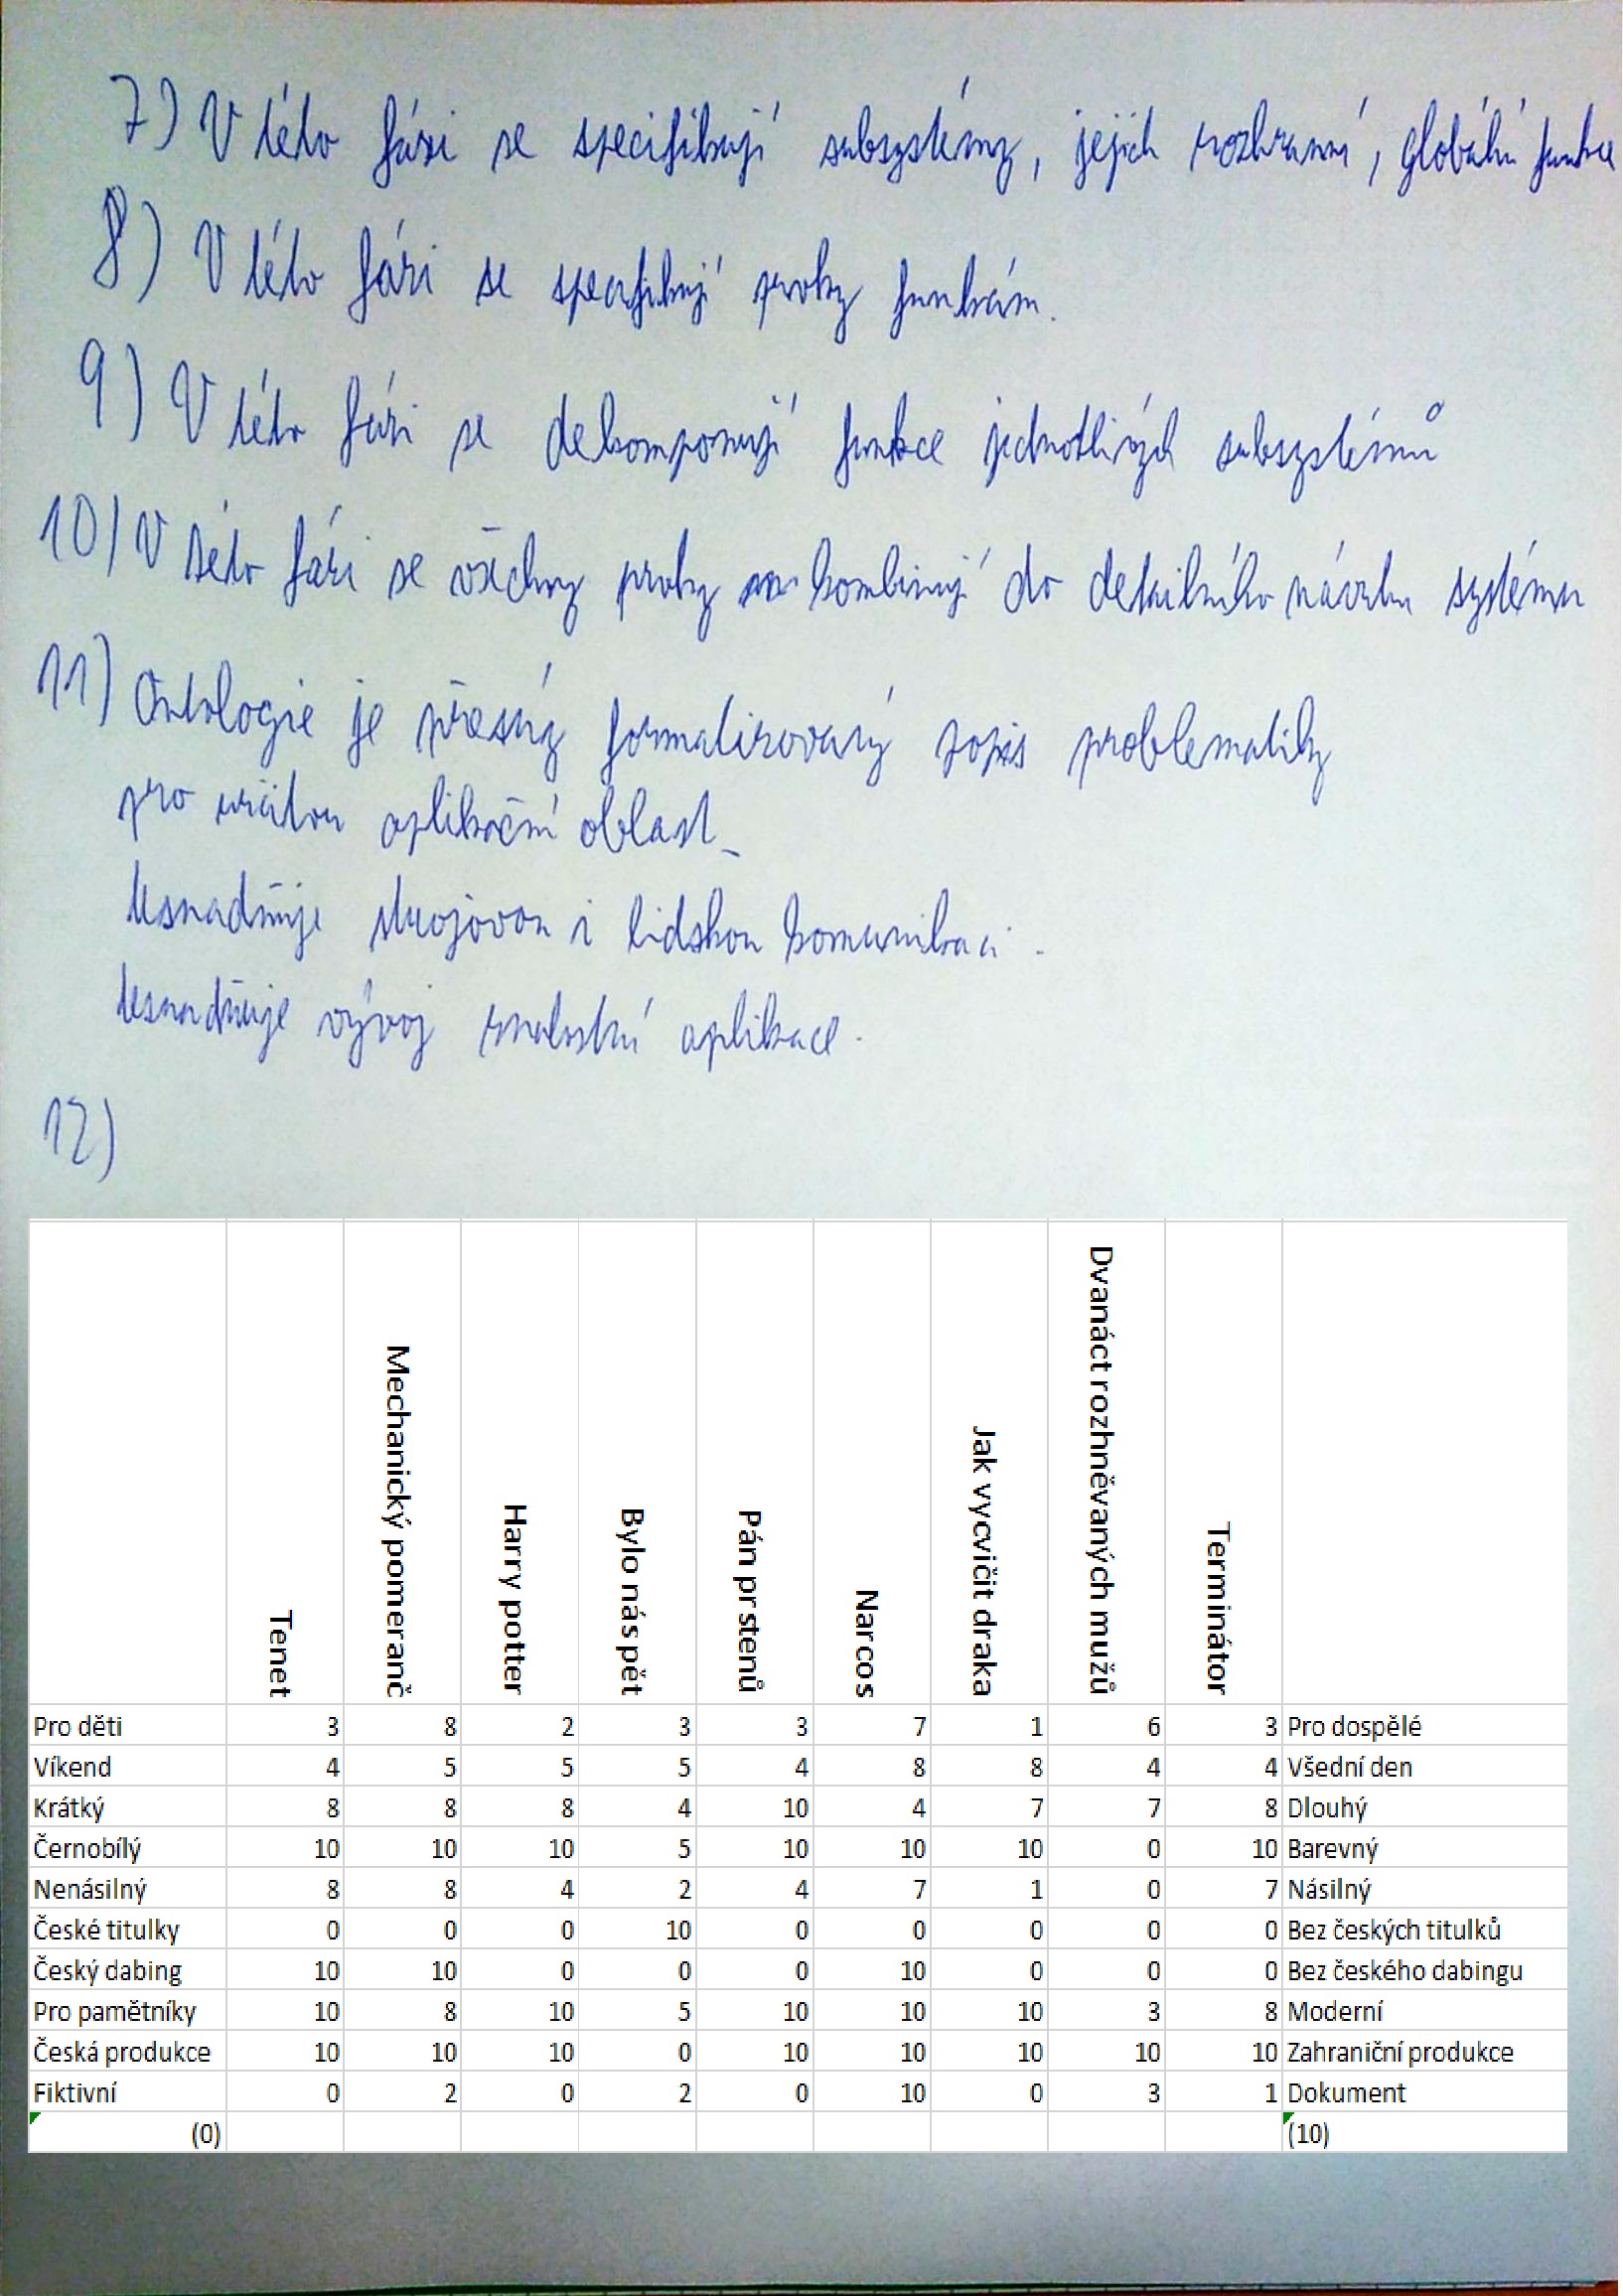 7) V této fázi se specifikují subsystémy, jejich rozhranní, globální funkce
8) V této fázi se specifikují prvky funkcím.
9) V této fázi se dekomponují funkce jednotlivých subsystémů
10) V této fázi se všechny prvky kombinují do detailního návrhu systému
11) Ontologie je přesný formalizovaný popis problematiky
pro určitou aplikační oblast.
Usnadňuje strojovou i lidskou komunikaci.
Usnadňuje vývoj znalostní aplikace.
12)
Tenet Mechanický pomeranč Harry potter Bylo nás pět Pán prstenů Narcos Jak vycvičit draka Dvanáct rozhněvaných mužů Terminátor
Pro děti 3 8 2 3 3 7 1 6 3 Pro dospělé
Víkend 4 5 5 5 4 8 8 4 4 Všední den
Krátký 8 8 8 4 10 4 7 7 8 Dlouhý
Černobílý 10 10 10 5 10 10 10 0 10 Barevný
Nenásilný 8 8 4 2 4 7 1 0 7 Násilný
České titulky 0 0 0 10 0 0 0 0 0 Bez českých titulků
Český dabing 10 10 0 0 0 10 0 0 0 Bez českého dabingu
Pro pamětníky 10 8 10 5 10 10 10 3 8 Moderní
Česká produkce 10 10 10 0 10 10 10 10 10 Zahraniční produkce
Fiktivní 0 2 0 2 0 10 0 3 1 Dokument
(0) (10)